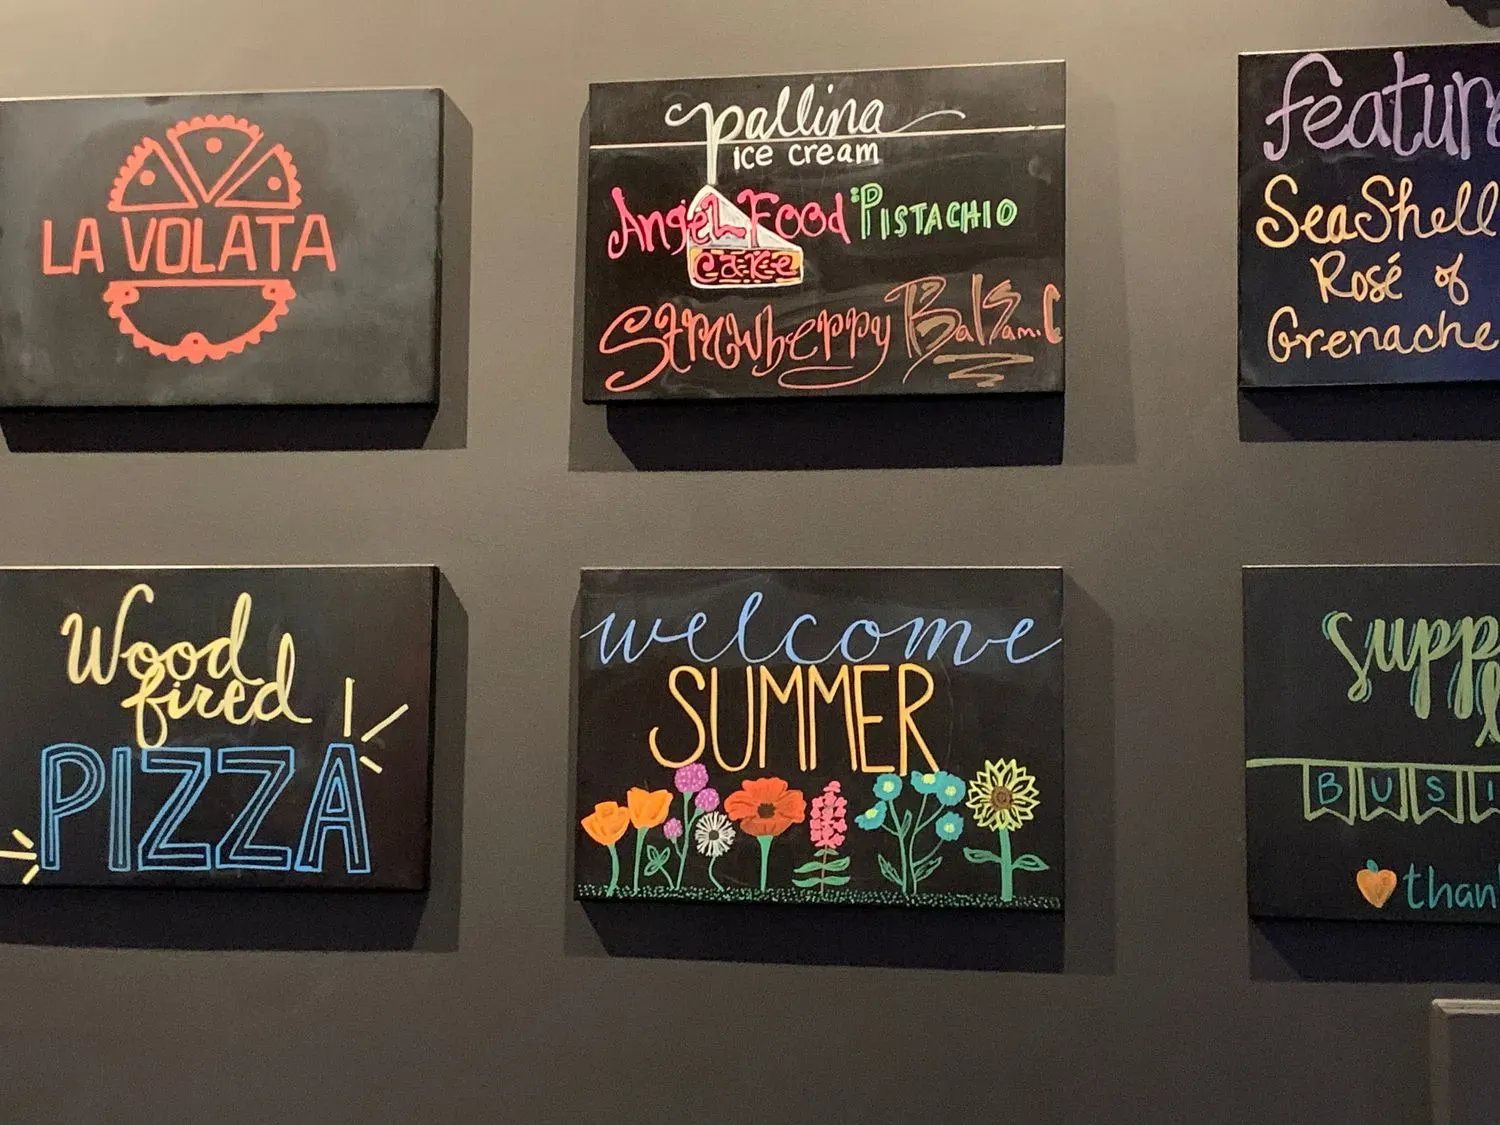 LA VOLATA
pallina
ice cream
Angel Food
cake
PISTACHIO
Strawberry Balsamic
SeaShell
Rosé of
Grenache
Wood
fired
PIZZA
welcome
SUMMER